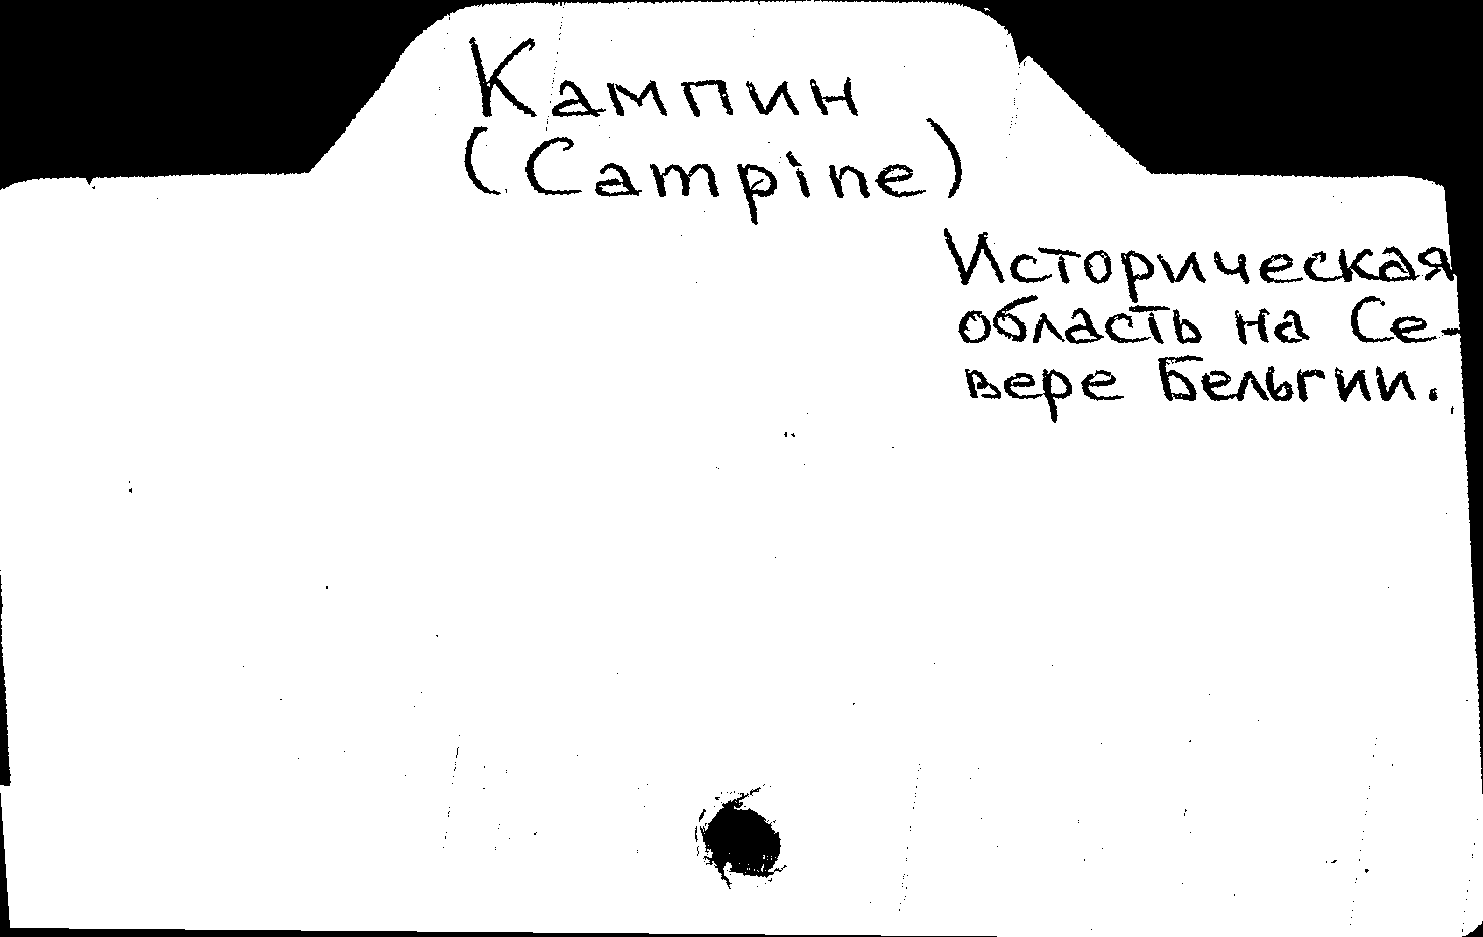 Кампин
(Campine)
Историческая
область на Се-
вере Бельгии.